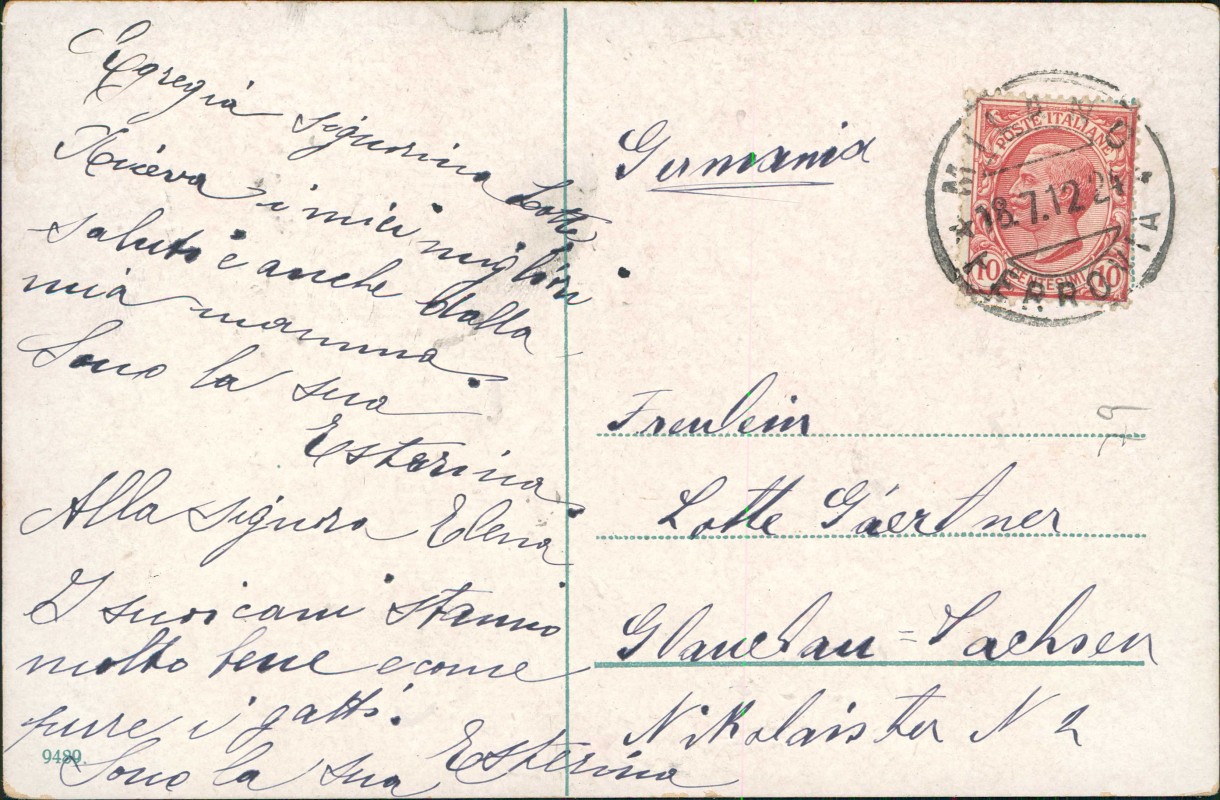 Egregia signorina Lotte
Riceva i miei migliori
saluti e anche dalla
mia mamma.
Sono la sua
Esterina.
Alla signora Elena
I suoi cani stanno
molto bene e come
pure i gatti.
Sono la sua Esterina
9489.
Germania
POSTE ITALIANE
10 CENTESIMI 10
MILANO
* 18.7.12 24
FERROVIA
79
Freulein
Lotte Gäertner
Glauchau = Sachsen
Nikolaister N 2